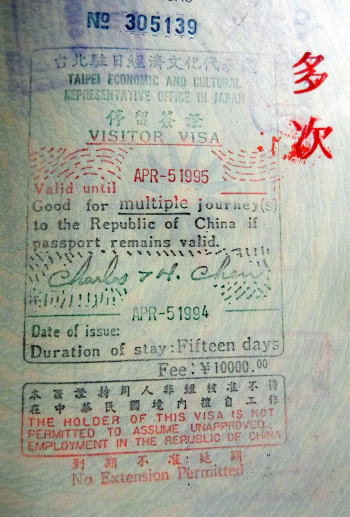 № 305139
台北駐日經濟文化代表處
TAIPEI ECONOMIC AND CULTURAL
REPRESENTATIVE OFFICE IN JAPAN
停留簽證
VISITOR VISA
多次
APR-51995
Valid until
Good for multiple journey(s)
to the Republic of China if
passport remains valid.
Charles H. Chen
APR-51994
Date of issue:
Duration of stay: Fifteen days
Fee: ¥10000.00
本簽證持用人非經核准不得
在中華民國境內擅自工作
THE HOLDER OF THIS VISA IS NOT
PERMITTED TO ASSUME UNAPPROVED
EMPLOYMENT IN THE REPUBLIC OF CHINA
到期不准延期
No Extension Permitted